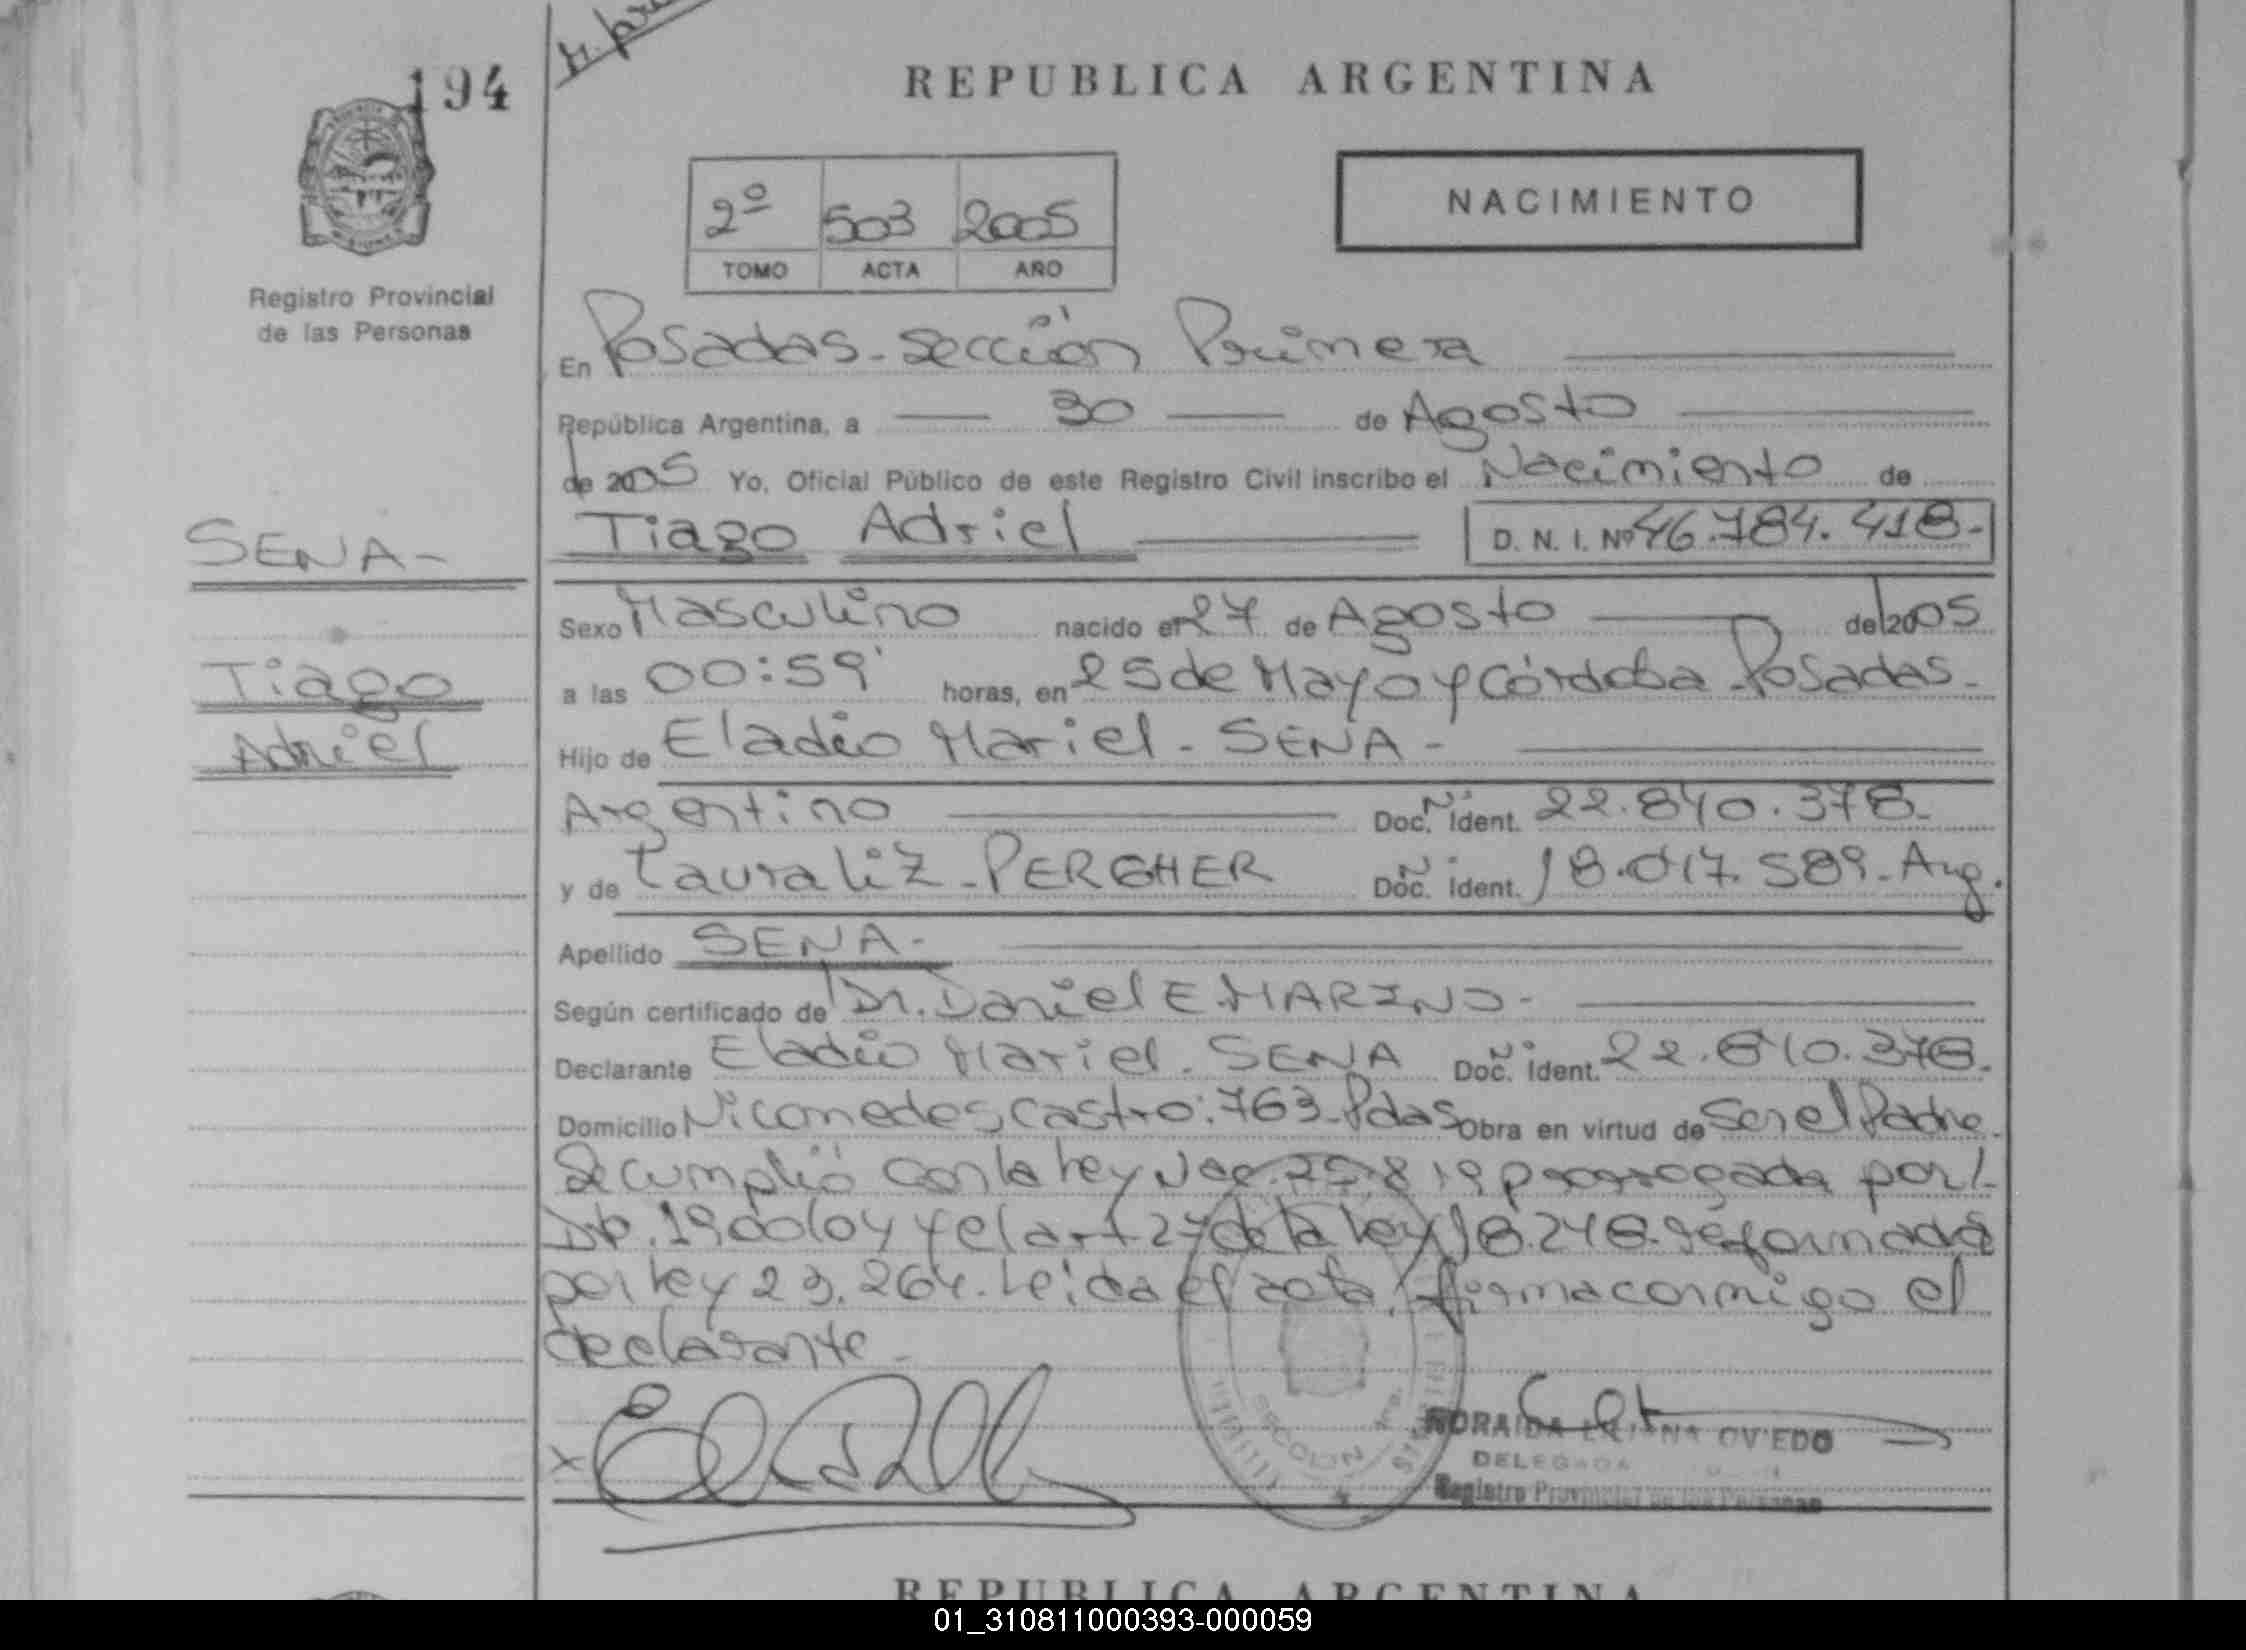 194
REPUBLICA ARGENTINA
NACIMIENTO
2º 503 2005
TOMO ACTA AÑO
Registro Provincial
de las Personas
En Posadas - Sección Primera
República Argentina, a 30 de Agosto
de 2005 Yo, Oficial Público de este Registro Civil inscribo el Nacimiento de
Tiago Adriel D. N. I. Nº 46.784.418-
SENA-
Tiago
Adriel
Sexo Masculino nacido el 27 de Agosto de 2005
a las 00:59' horas, en 25 de Mayo y Córdoba - Posadas -
Hijo de Eladio Mariel - SENA -
Argentino Doc. Nº Ident. 22.840.378-
y de Laura liz - PERGHER Doc. Nº Ident. 18.017.589 - Arg.
Apellido SENA -
Según certificado de Dr. Daniel E MARINO -
Declarante Eladio Mariel - SENA Doc. Nº Ident. 22.840.378-
Domicilio Nicomedes Castro: 763 - Pdas Obra en virtud de Ser el Padre -
Se cumplió con la ley Nac. 25.819 prorrogada por
1900/04 y el art 27 de la ley 18.248 reformada
por ley 23.264. Leída el acta, firma conmigo el
declarante -
SECCION 1ra.
NORAIDA LILIANA OVIEDO
DELEGADA
Registro Provincial de las Personas
REPUBLICA ARGENTINA
01_310811000393-000059